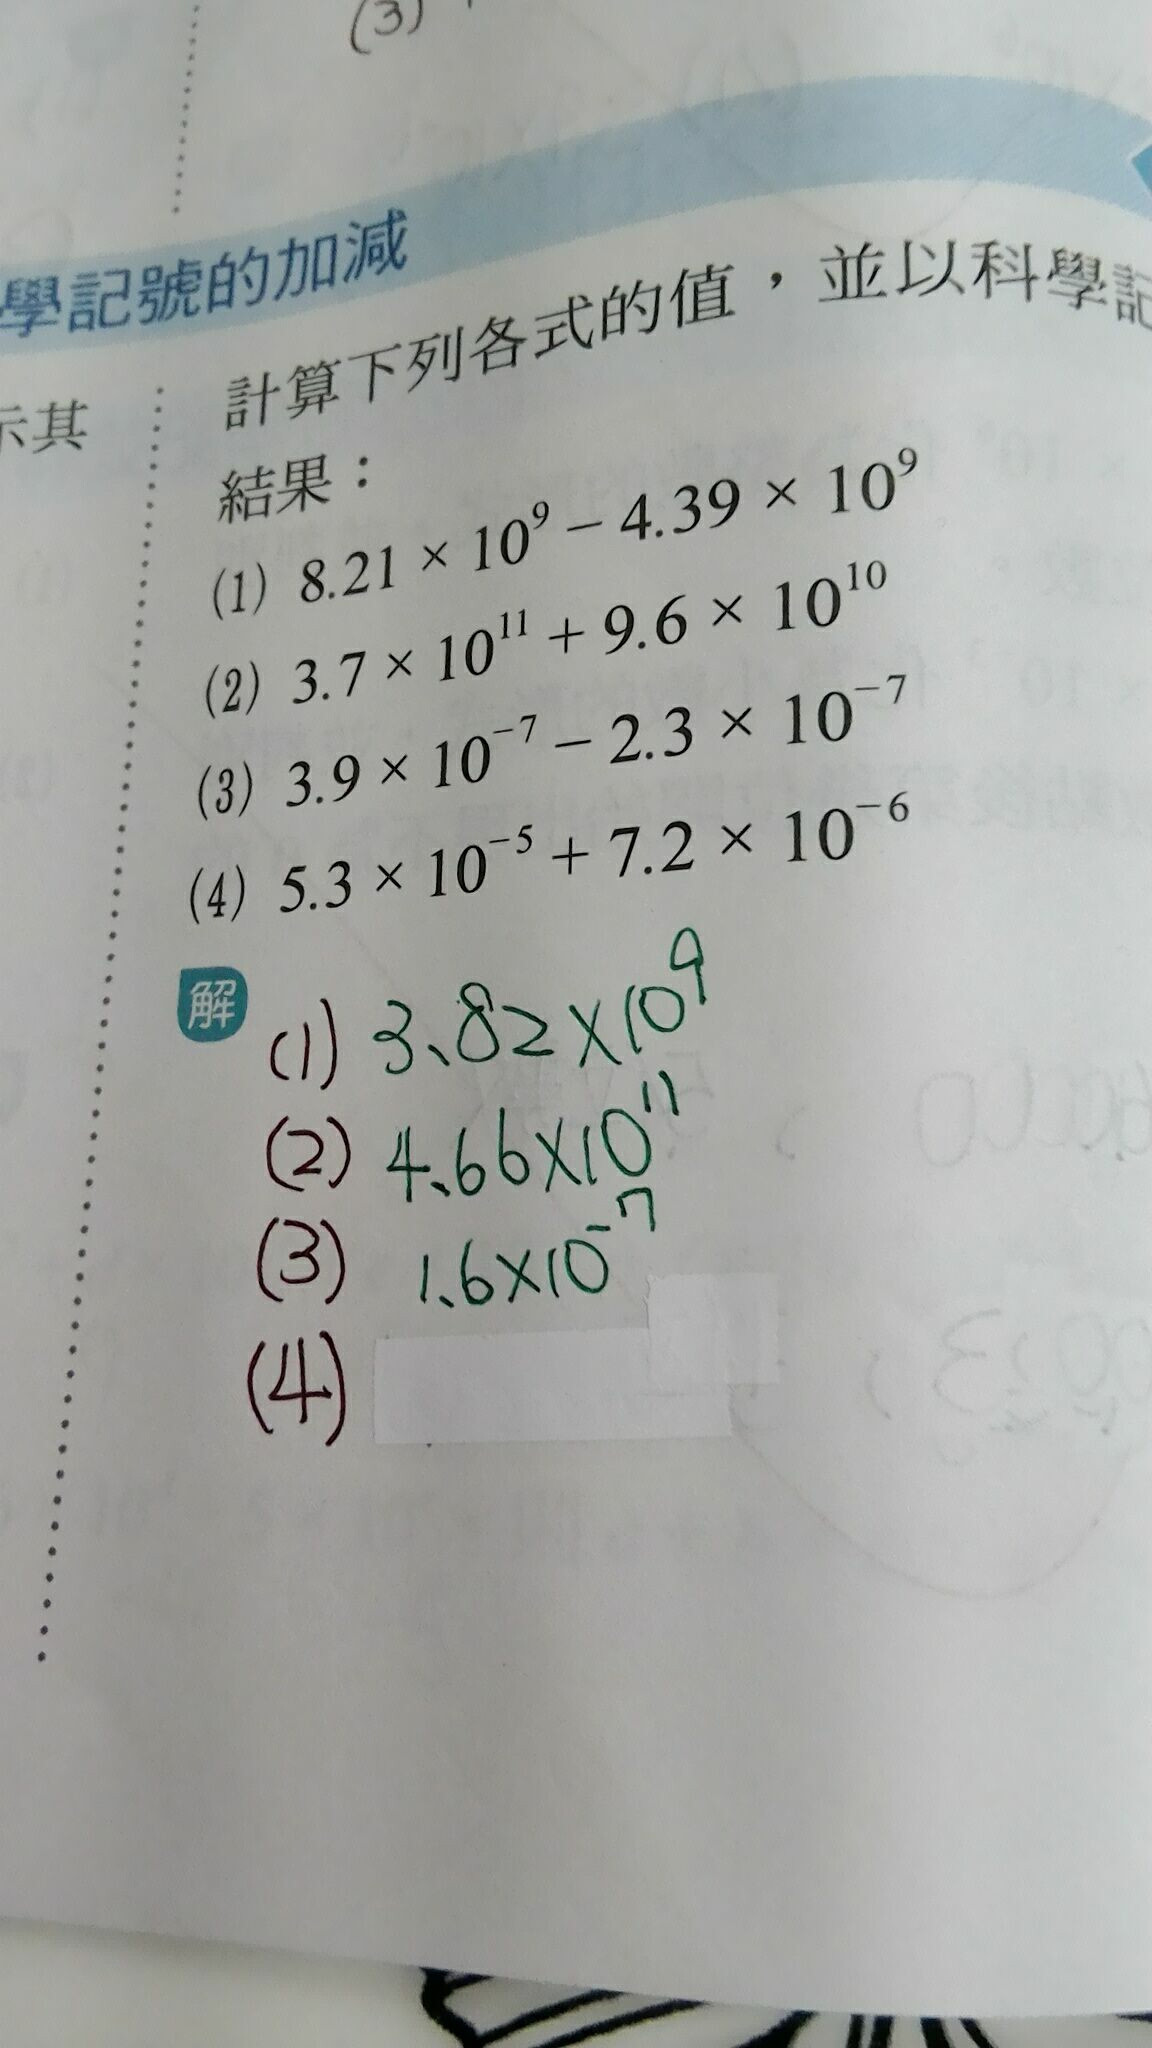 (3)
學記號的加減
示其
計算下列各式的值，並以科學記
結果：
(1) 8.21 × 10⁹ − 4.39 × 10⁹
(2) 3.7 × 10¹¹ + 9.6 × 10¹⁰
(3) 3.9 × 10⁻⁷ − 2.3 × 10⁻⁷
(4) 5.3 × 10⁻⁵ + 7.2 × 10⁻⁶
解
(1) 3.82×10⁹
(2) 4.66×10¹¹
(3) 1.6×10⁻⁷
(4)